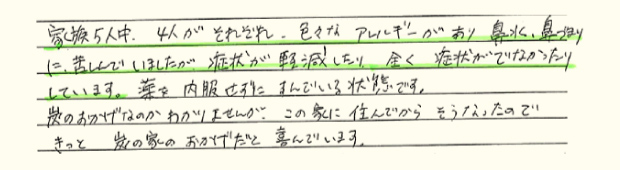 家族5人中、4人がそれぞれ、色々なアレルギーがあり鼻水、鼻づまり
に、苦しんでいましたが、症状が軽減したり、全く症状がでなかったり
しています。薬を内服せずにすんでいる状態です。
炭のおかげなのかわかりませんが、この家に住んでからそうなったので
きっと炭の家のおかげだと喜んでいます。